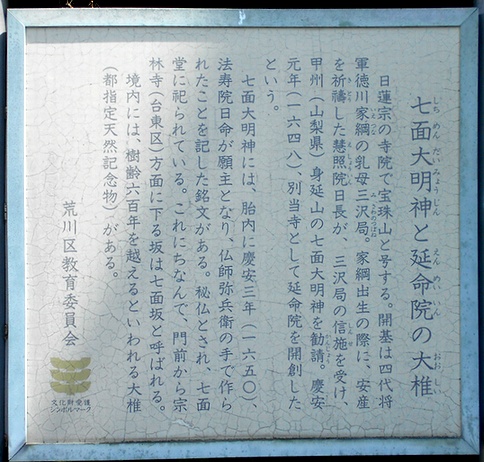 七面大明神と延命院の大椎
しちめんだいみょうじん えんめいいん おおしい
日蓮宗の寺院で宝珠山と号する。開基は四代将
軍徳川家綱の乳母三沢局。家綱出生の際に、安産
を祈禱した慧照院日長が、三沢局の信施を受け、
甲州（山梨県）身延山の七面大明神を勧請。慶安
元年（一六四八）、別当寺として延命院を開創した
という。
七面大明神には、胎内に慶安三年（一六五〇）、
法寿院日命が願主となり、仏師弥兵衛の手で作ら
れたことを記した銘文がある。秘仏とされ、七面
堂に祀られている。これにちなんで、門前から宗
林寺（台東区）方面に下る坂は七面坂と呼ばれる。
境内には、樹齢六百年を越えるといわれる大椎
（都指定天然記念物）がある。
荒川区教育委員会
文化財愛護
シンボルマーク